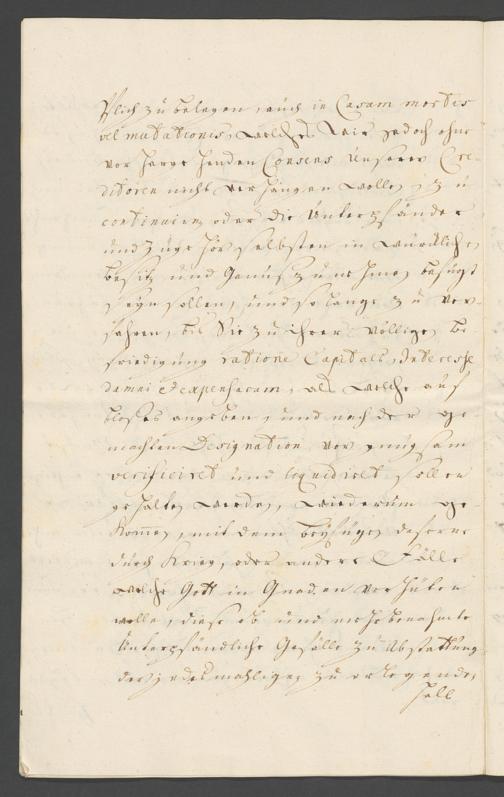 lich zu belegen, auch in Casum mortis
vel mutationis, welches Wir jedoch ohne
vorhergehenden Consens Unserer Cre-
ditoren nicht verhängen wollen, zu
continuiren oder die Unterpfänder
und Zugehör selbsten in würcklichen
Besitz und Genuß zu nehmen befugt
seyn sollen, und so lange zu ver-
fahren, bis Sie zu ihrer völligen be-
friedigung ratione Capitals, Interesse
damni & expensarum, als welche auf
bloßes angeben, und nach der ge-
machten Designation, vor gnugsam
verificiret und liquidiret sollen
gehalten werden, wiederum ge-
kommen, mit dem beyfügen daferne
durch Krieg, oder andere Fälle
welche Gott in Gnaden verhüten
wolle, diese ob und mehrbenahmte
Unterpfändliche Gefälle zu Abstattung
der jedesmahligen zu erlegenden